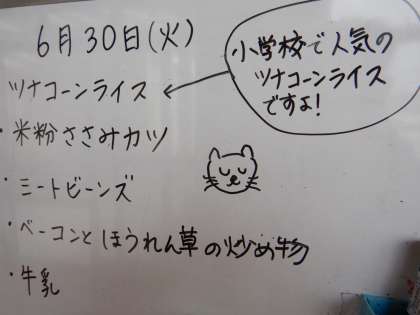 6月30日(火)
ツナコーンライス
・米粉ささみカツ
・ミートビーンズ
・ベーコンとほうれん草の炒め物
・牛乳
小学校で人気の
ツナコーンライス
ですよ!